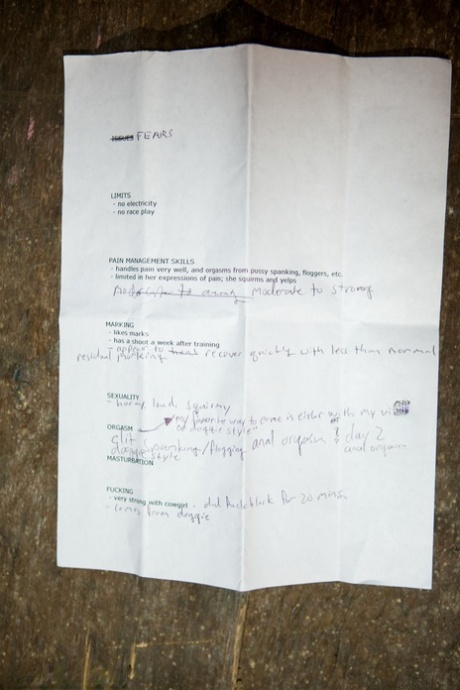 ISSUES FEARS
LIMITS
- no electricity
- no race play
PAIN MANAGEMENT SKILLS
- handles pain very well, and orgasms from pussy spanking, floggers, etc.
- limited in her expressions of pain; she squirms and yelps
Moderate to strong
MARKING
- likes marks
- has a shoot a week after training
- appear to recover quickly with less than normal
residual marking
SEXUALITY
- horny, loud, squirmy
"my favorite way to come is either with my
or doggie style"
ORGASM
clit spanking/flogging anal orgasm day 2
doggie style anal orgasm
MASTURBATION
FUCKING
- very string with cowgirl - did for 20 mins
- comes from doggie